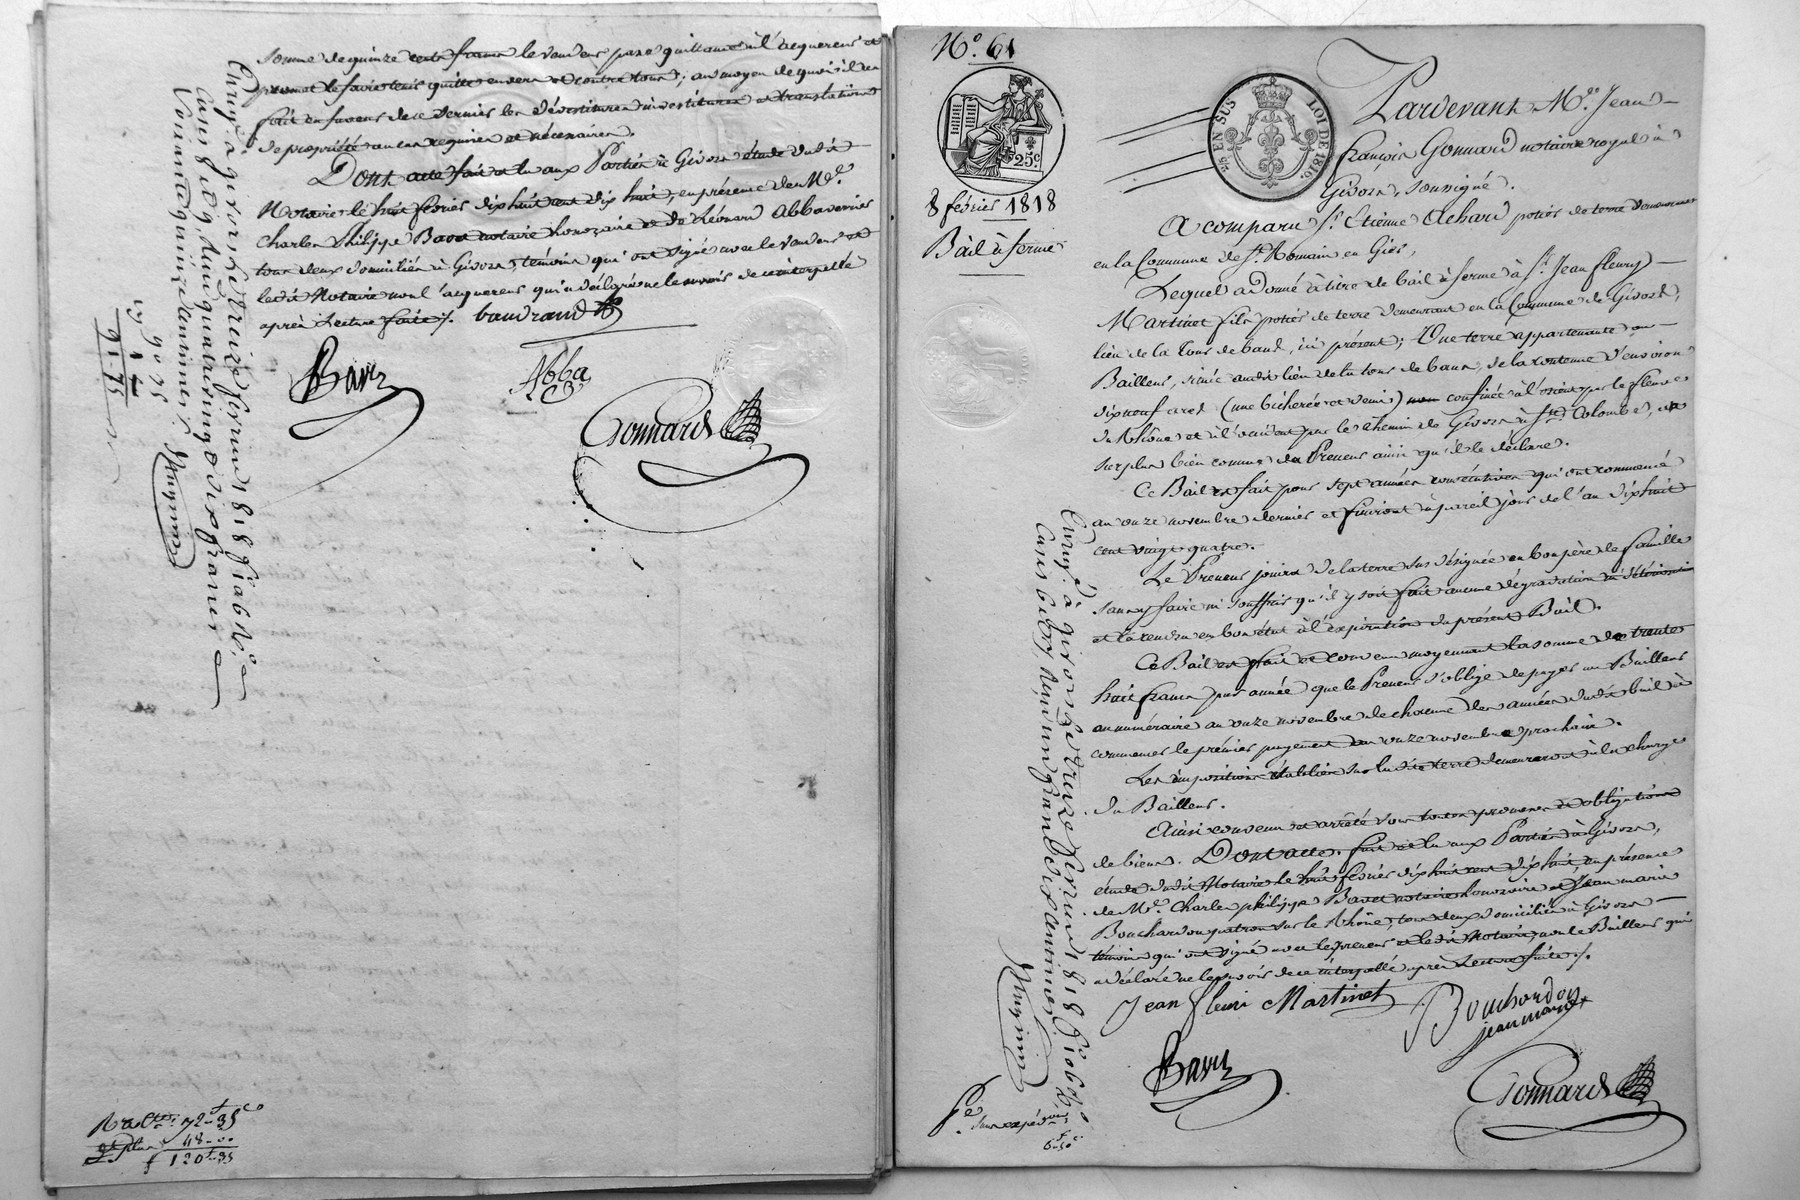 somme de quinze cents francs le vendeur passe quittance à l'acquereur et
promet le faire tenir quitte envers et contre tous; au moyen de quoi il en
fait en faveur de ce dernier les dévestitures investitures et translations
de propriété au cas requises et nécessaires.
Dont acte fait et lu aux Parties à Givors étude dudit
Notaire le huit février dix huit cent dix huit, en présence de Mre.
Charles Philippe Bavet notaire honoraire et de Léonard Abba verrier
tous deux domiciliés à Givors, témoins qui ont signé avec le vendeur et
ledit Notaire non l'acquereur qui a déclaré ne le savoir de ce interpellé
après Lecture faite /. baudrand
Bavet
Abba
Gonnard
Enregé. à givors le treize février 1818 fo. 106 No.
cases 8 et 9, reçu quatre vingt dix francs
Soixante quinze centimes
90.75
9
91.75
72-35
48-00
120-35
No. 61
25c.
8 février 1818
Bail à ferme
25 EN SUS LOI DE 1816.
Pardevant Me. Jean
François Gonnard notaire royal à
Givors, soussigné.
A comparu Sr. Etienne Achard potier de terre demeurant
en la Commune de St. Romain en Gier,
Lequel a donné à titre de bail à ferme à Sr. Jean fleury
Martinet fils potier de terre demeurant en la Commune de Givors,
lieu de la Tour de baud, ici présent; Une terre appartenante au
Bailleur, située audit lieu de la tour de baux, de la contenue d'environ
dix neuf ares (une bicherée et demi) confinée à l'orient par le fleuve
du Rhône et à l'occident par le Chemin de Givors à Ste. Colombe, et
surplus bien connue du Preneur ainsi qu'il le déclare.
Ce Bail est fait pour sept années consécutives qui ont commencé
au onze novembre dernier et finiront à pareil jour de l'an dix huit
cent vingt quatre.
Le Preneur jouira de la terre sus désignée en bon père de famille
sans y faire ni souffrir qu'il y soit fait aucune dégradation ni détérioration
et la rendra en bon état à l'expiration du présent Bail.
Ce Bail est fait et convenu moyennant la somme de trente
huit francs par année que le Preneur s'oblige de payer au Bailleur
en numéraire au onze novembre de chacune des années dudit bail à
commencer le premier payement au onze novembre prochain.
Les impositions établies sur ladite terre demeureront à la charge
du Bailleur.
Ainsi convenu et arrêté sous toutes promesses et obligations
de biens. Dont acte, fait et lu aux Parties à Givors,
étude dudit Notaire le huit février dix huit cent dix huit en présence
de Mre. Charles philippe Bavet notaire honoraire et Jean marie
Bouchardon patron sur le Rhône, tous deux domiciliés à Givors
témoins qui ont signé avec le preneur et ledit Notaire, non le Bailleur qui
a déclaré ne le savoir de ce interpellé après Lecture faite /.
Jean fleuri Martinet
Bouchardon
jean marie
Bavet
Gonnard
Enregé. à givors le treize février 1818 fo. 106 Vo.
cases 6 et 7, reçu un franc dix centimes